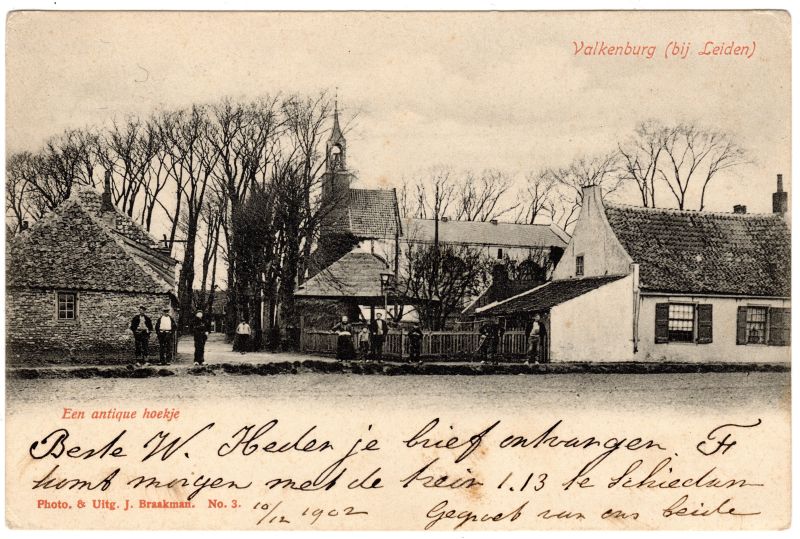 Valkenburg (bij Leiden)
Een antique hoekje
Beste W. Heden je brief ontvangen. F
komt morgen met de trein 1.13 te Schiedam
Photo. & Uitg. J. Braakman. No. 3.
10/12 1902 Gegroet van ons beide